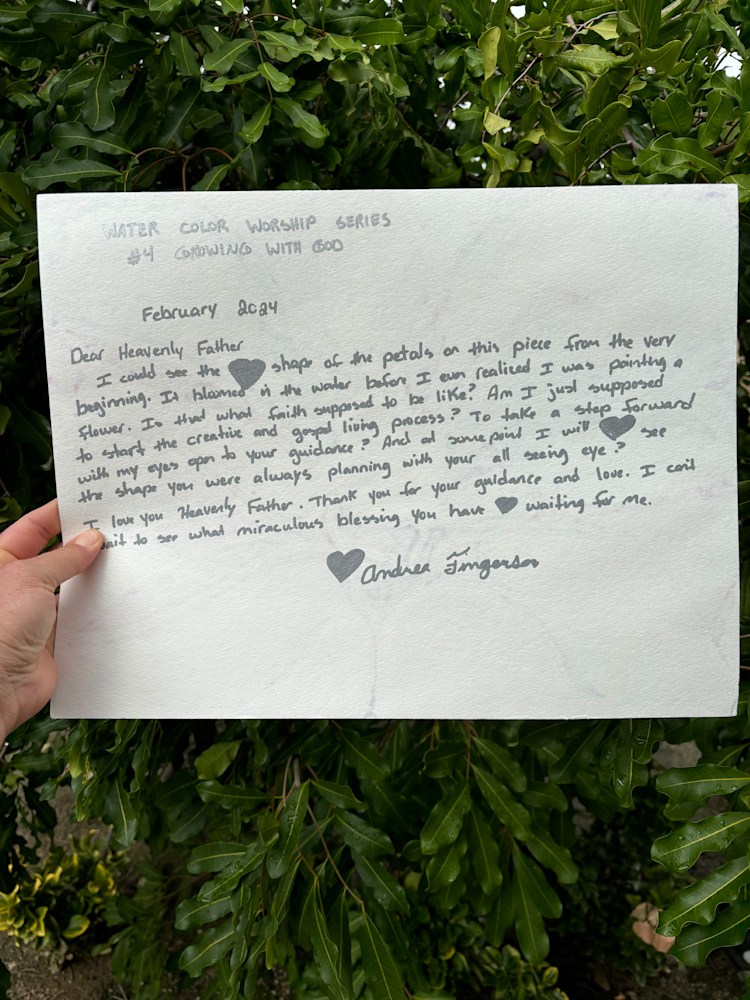 WATER COLOR WORSHIP SERIES
#4 GROWING WITH GOD
February 2024
Dear Heavenly Father
I could see the ♥ shape of the petals on this piece from the very
beginning. It bloomed in the water before I even realized I was painting a
flower. Is that what faith supposed to be like? Am I just supposed
to start the creative and gospel living process? To take a step forward
with my eyes open to your guidance? And at some point I will ♥ see
the shape you were always planning with your all seeing eye?
I love you Heavenly Father. Thank you for your guidance and love. I can't
wait to see what miraculous blessing you have ♥ waiting for me.
♥ Andrea